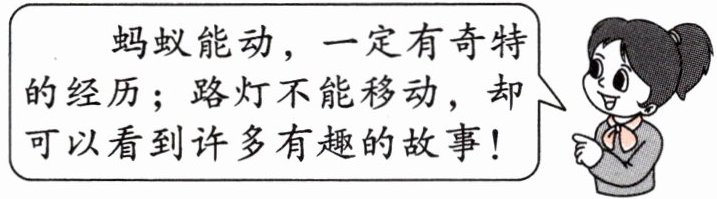 蚂蚁能动，一定有奇特
的经历；路灯不能移动，却
可以看到许多有趣的故事！